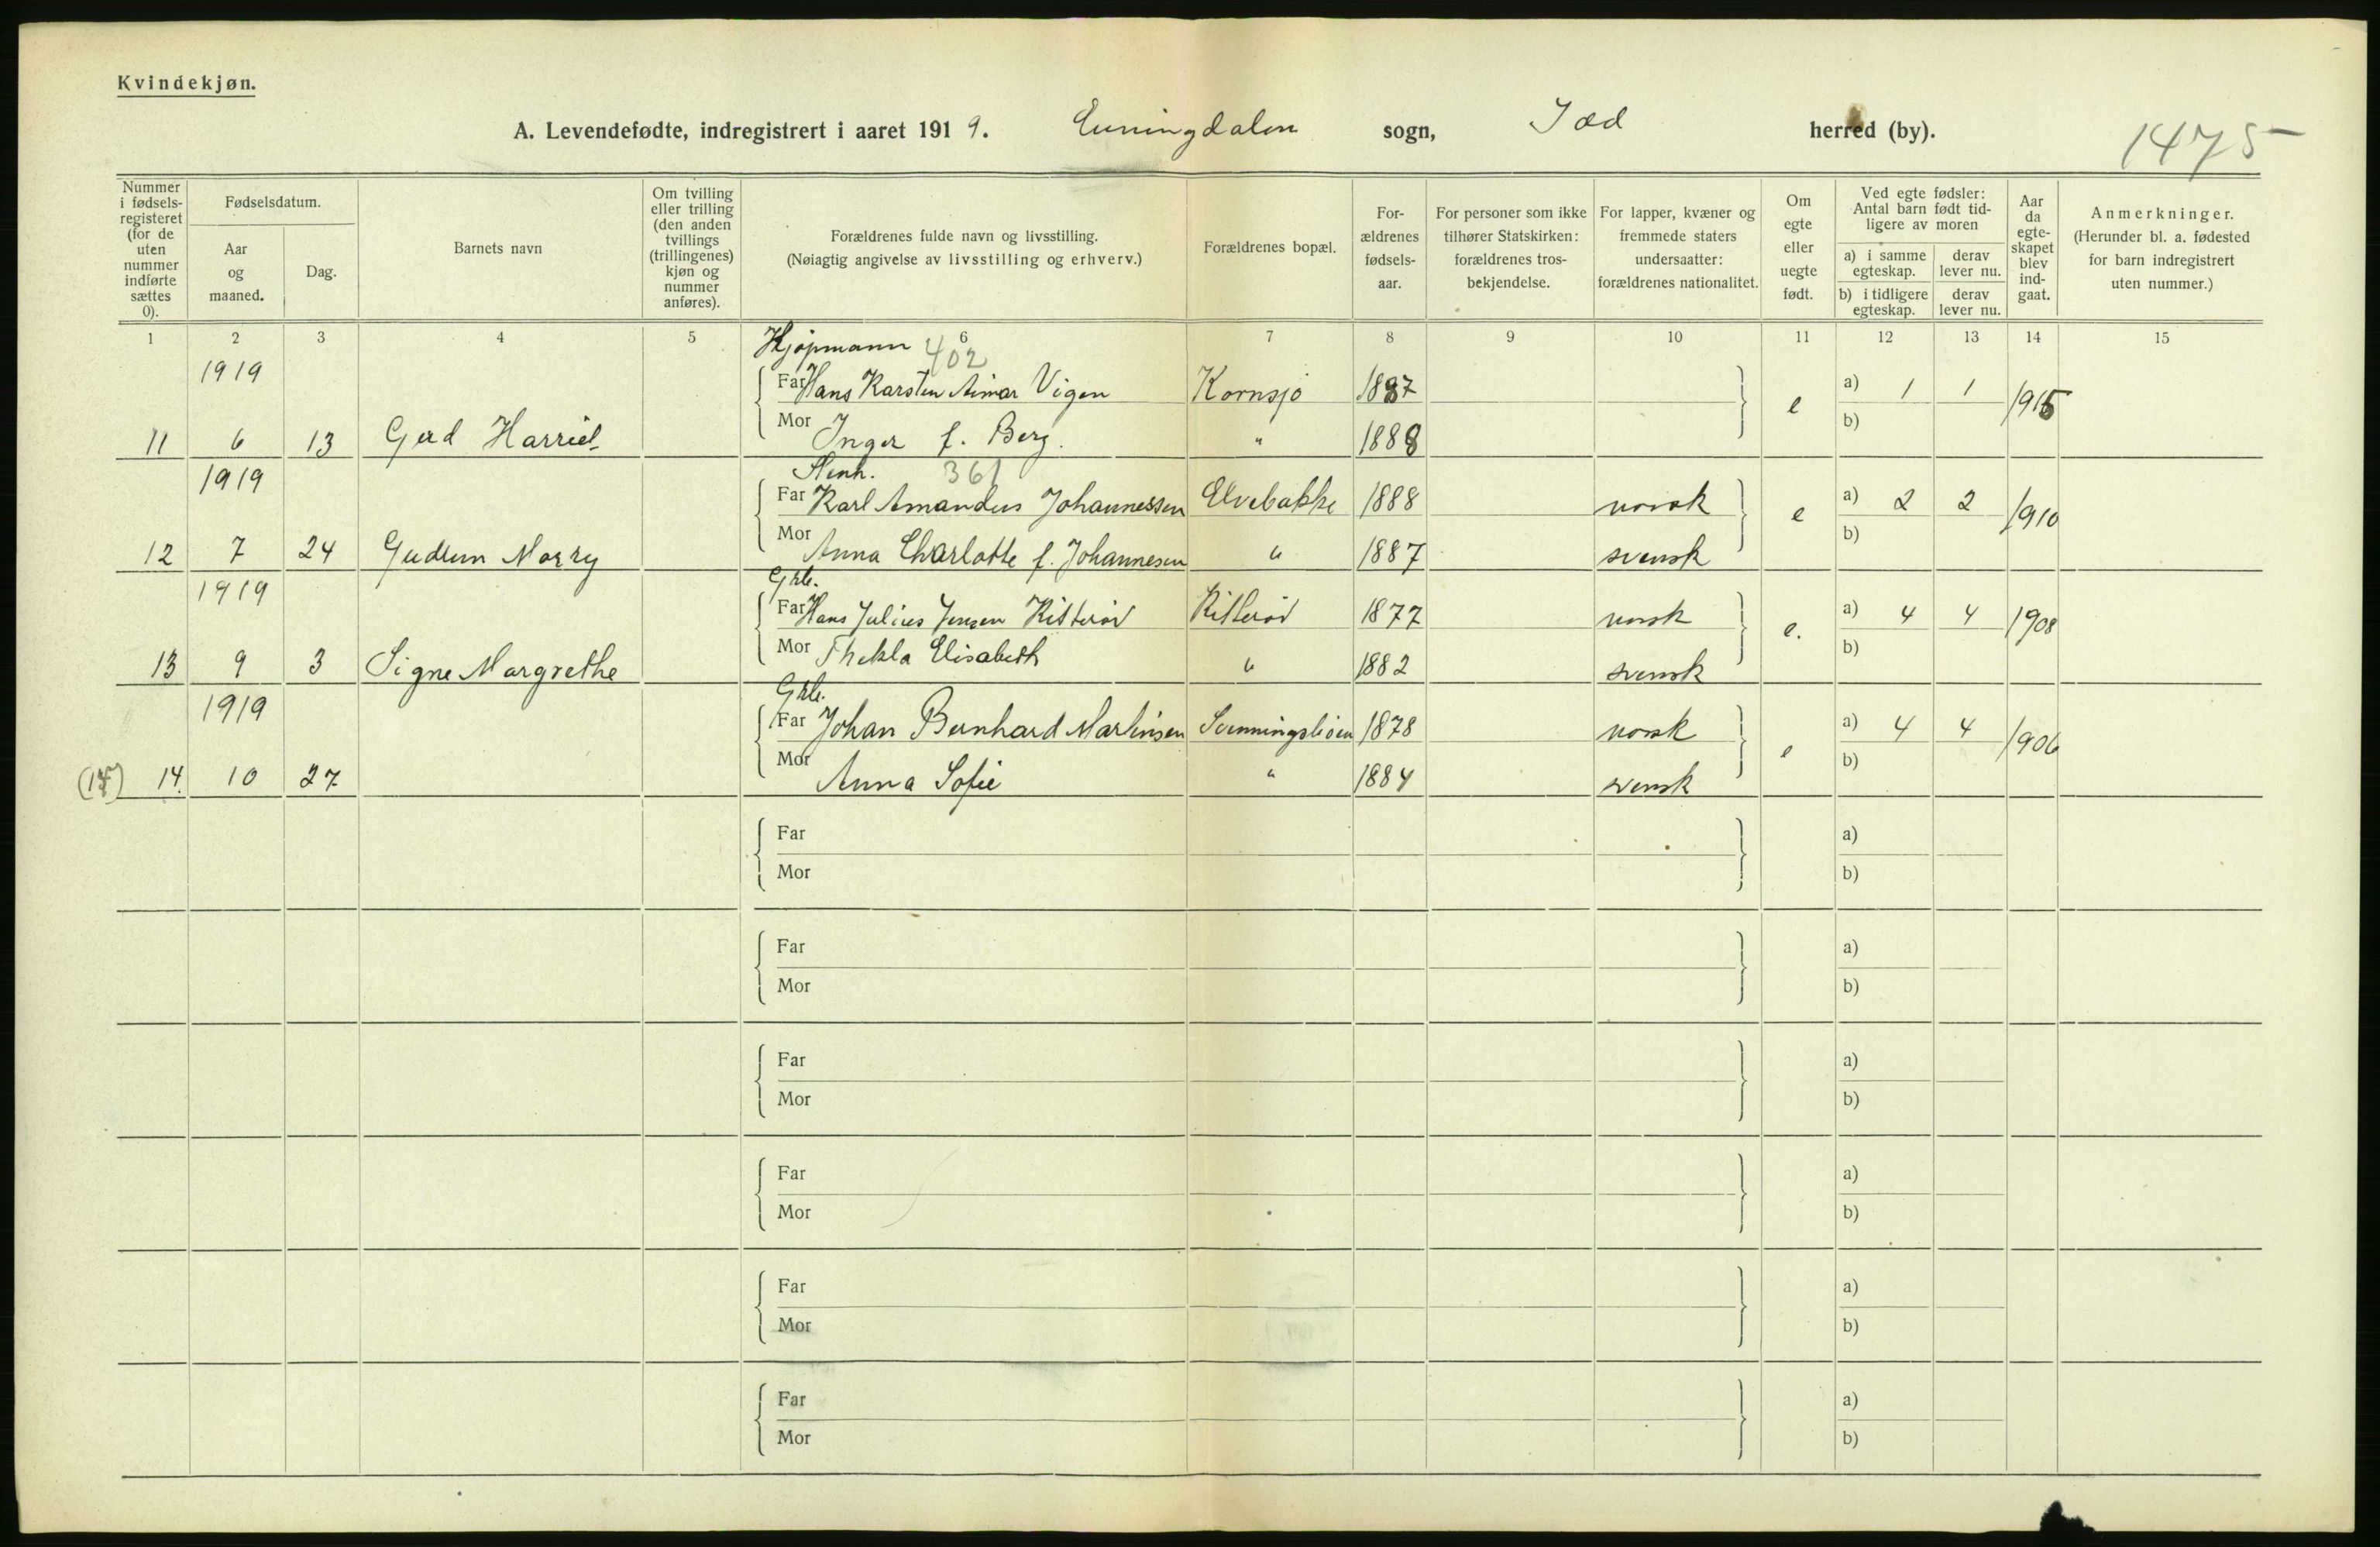 Kvindekjøn.
A. Levendefødte, indregistrert i aaret 1919. Enningdalen sogn, Idd herred (by).
1475
Nummer i fødselsregisteret (for de uten nummer indførte sættes 0).
Fødselsdatum.
Aar og maaned.
Dag.
Barnets navn
Om tvilling eller trilling (den anden tvillings (trillingenes) kjøn og nummer anføres).
Forældrenes fulde navn og livsstilling.
(Nøiagtig angivelse av livsstilling og erhverv.)
Forældrenes bopæl.
Forældrenes fødselsaar.
For personer som ikke tilhører Statskirken: forældrenes trosbekjendelse.
For lapper, kvæner og fremmede staters undersaatter: forældrenes nationalitet.
Om egte eller uegte født.
Ved egte fødsler: Antal barn født tidligere av moren
a) i samme egteskap.
derav lever nu.
b) i tidligere egteskap.
derav lever nu.
Aar da egteskapet blev indgaat.
Anmerkninger.
(Herunder bl. a. fødested for barn indregistrert uten nummer.)
1 2 3 4 5 6 7 8 9 10 11 12 13 14 15
Kjøpmann 402
1919 Far Hans Karsten Aimar Vigen Kornsjø 1887 e a) 1 1 1915
11 6 13 Gerd Harriet Mor Inger f. Berg. " 1888 b)
Stenh. 361
1919 Far Karl Amandus Johannessen Elvebakke 1888 norsk e a) 2 2 1910
12 7 24 Gudrun Marry Mor Anna Charlotte f. Johannesen " 1887 svensk b)
Grbr.
1919 Far Hans Julius Jensen Kitterød Kitterød 1877 norsk e. a) 4 4 1908
13 9 3 Signe Margrethe Mor Thekla Elisabeth " 1882 svensk b)
Grbr.
1919 Far Johan Bernhard Martinsen 1878 norsk e a) 4 4 1906
14. 10 27 Mor Anna Sofie " 1884 svensk b)
Far a)
Mor b)
Far a)
Mor b)
Far a)
Mor b)
Far a)
Mor b)
Far a)
Mor b)
Far a)
Mor b)